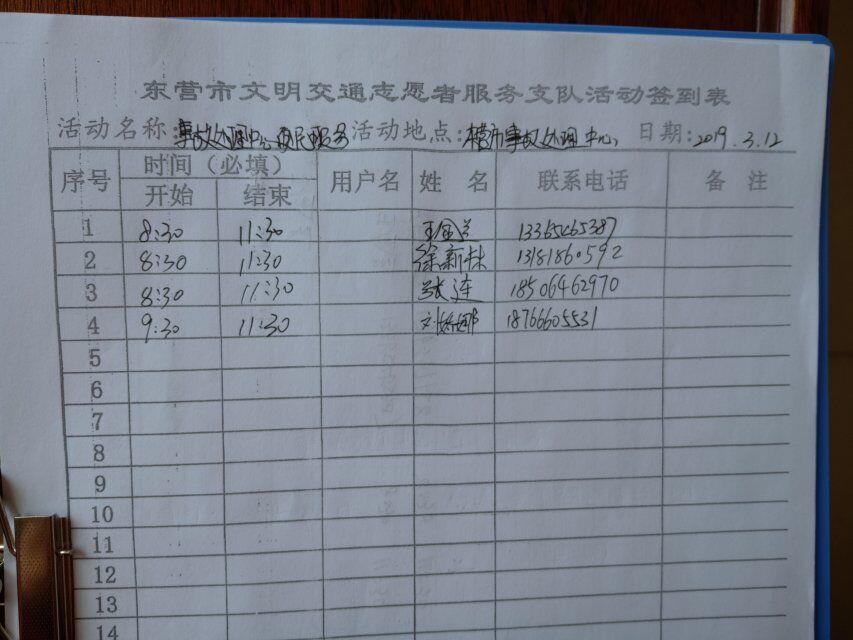 东营市文明交通志愿者服务支队活动签到表
活动名称:事故处理中心便民服务 活动地点:东营市事故处理中心 日期:2019.3.12
序号 时间(必填) 用户名 姓名 联系电话 备注
开始 结束
1 8:30 11:30 13365465387
2 8:30 11:30 徐新林 13181860592
3 8:30 11:30 张连 18506462970
4 9:30 11:30 刘娜 18766605531
5
6
7
8
9
10
11
12
13
14